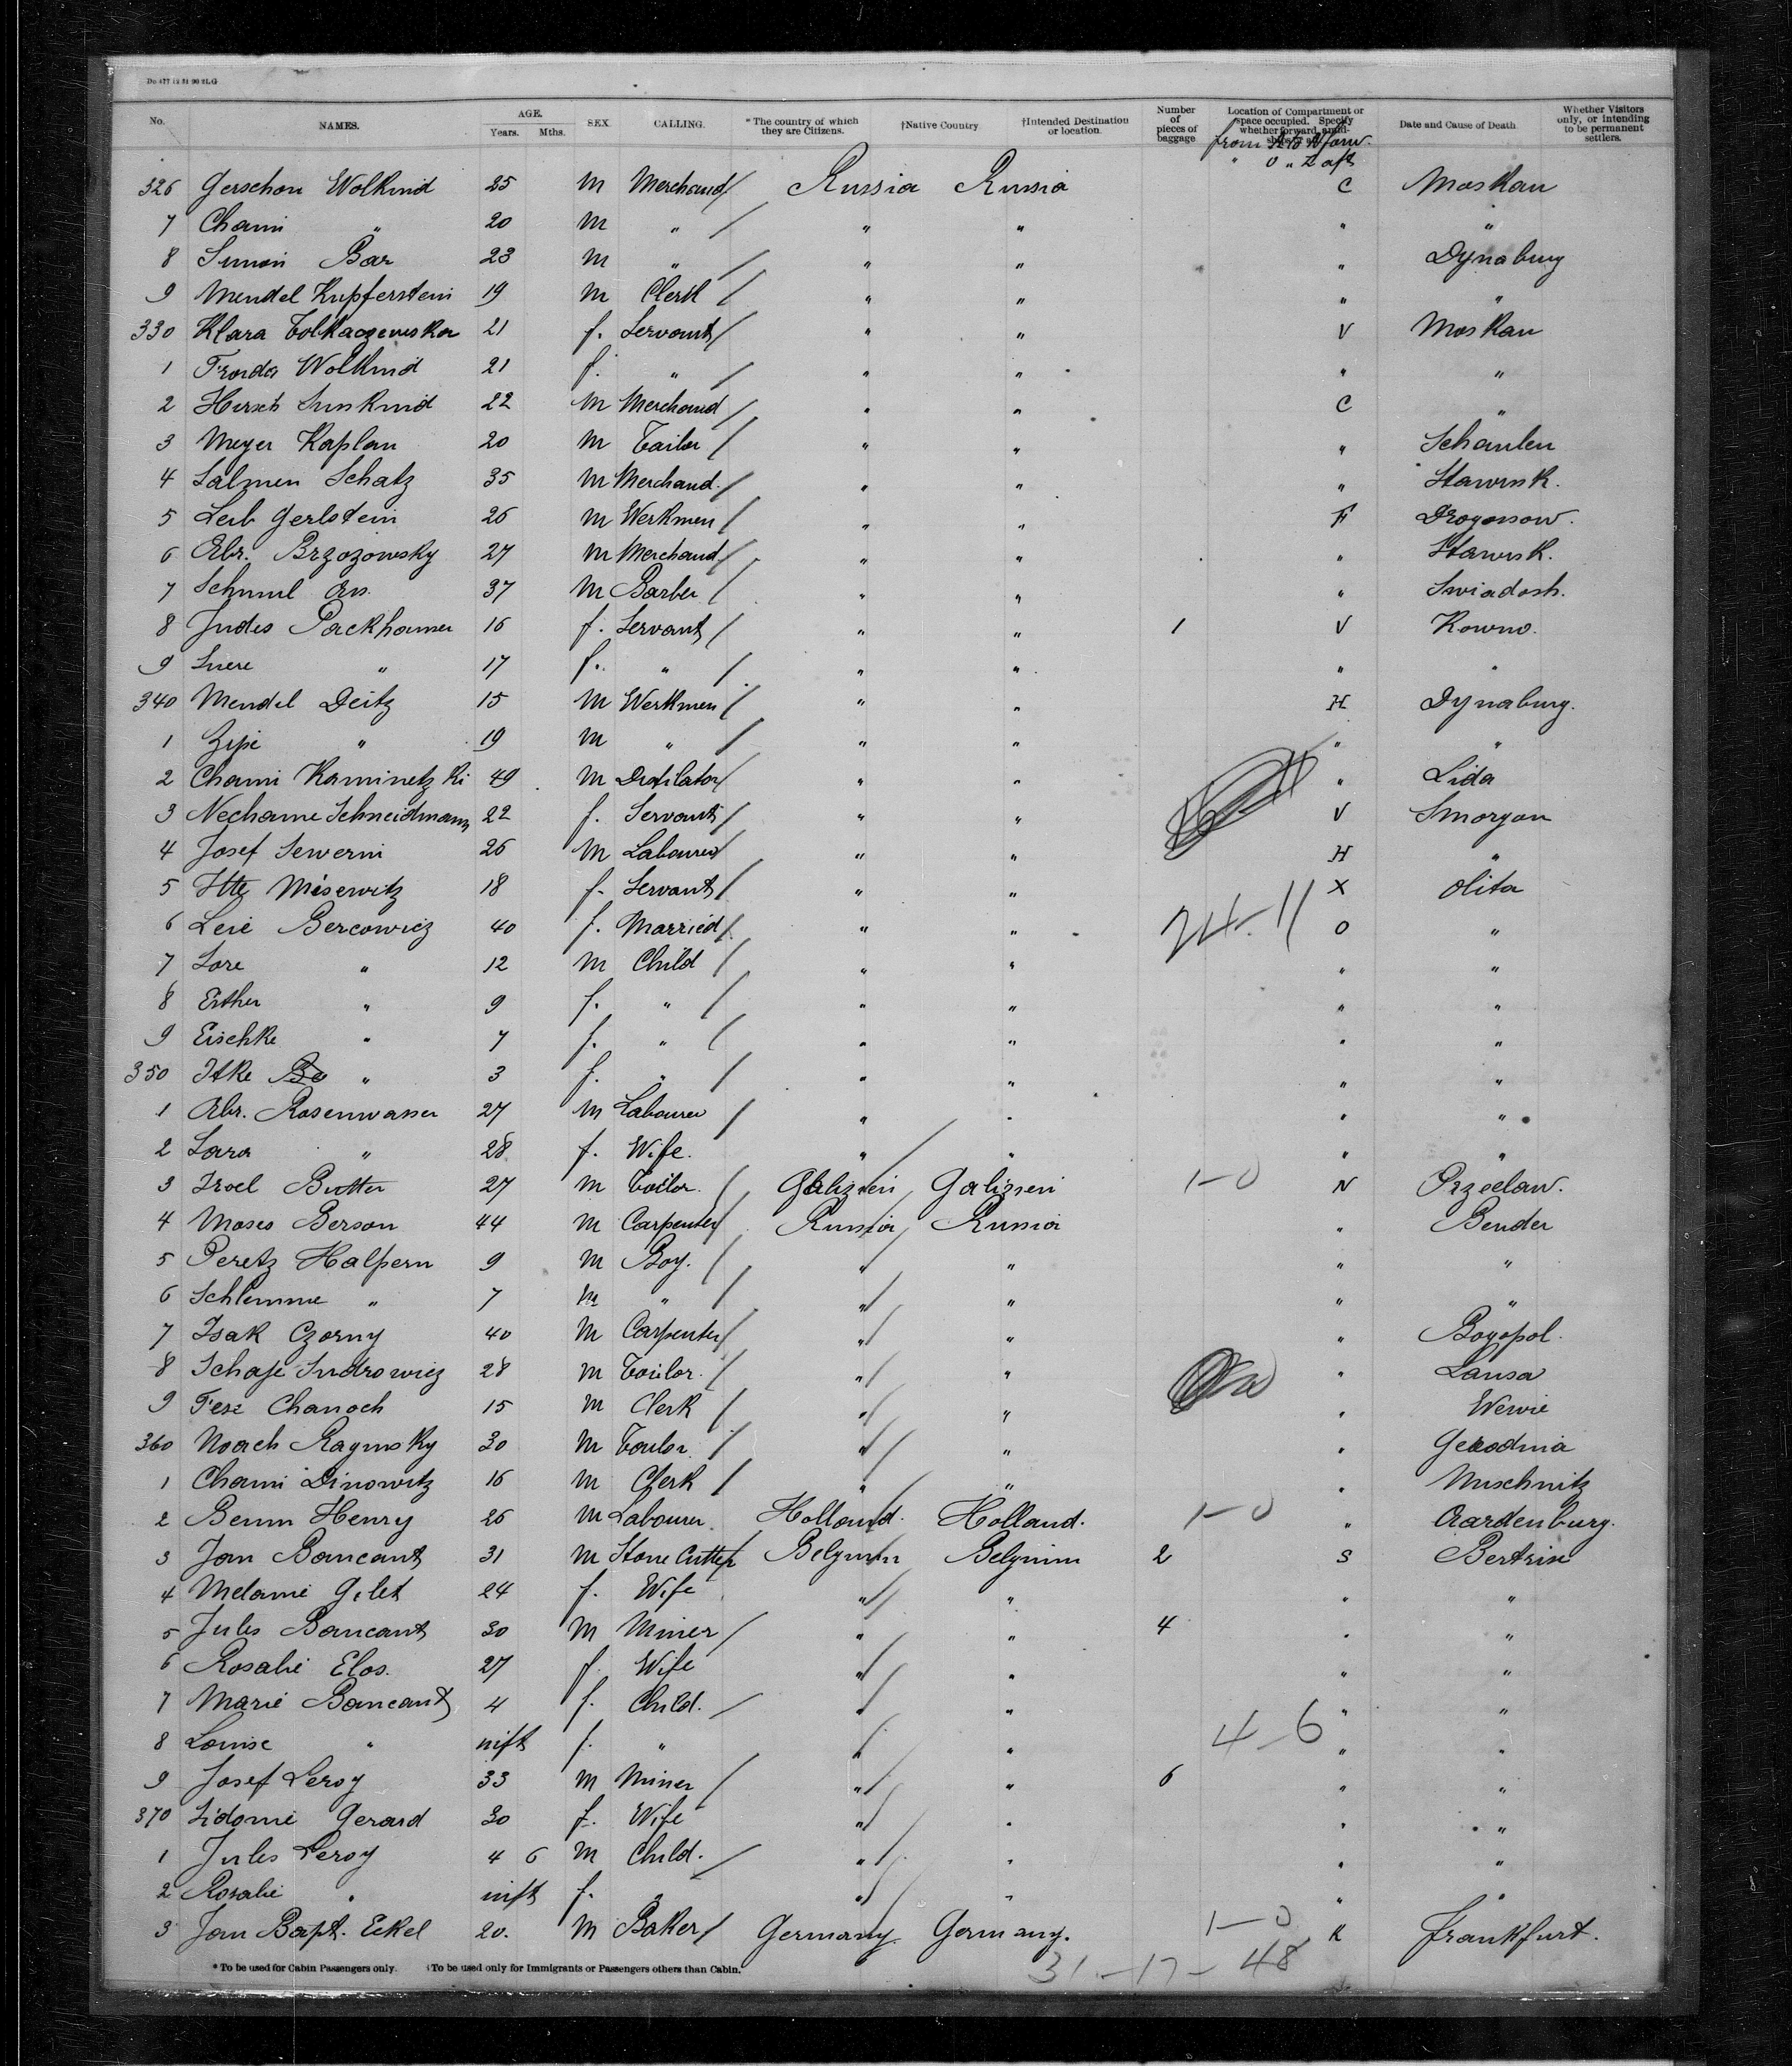 Do 477 12 31 90 2LG
No. NAMES. AGE. Years. Mths. SEX. CALLING. *The country of which they are Citizens. †Native Country †Intended Destination or location. Number of pieces of baggage Location of Compartment or space occupied. Specify whether forward, Date and Cause of Death. Whether Visitors only, or intending to be permanent settlers.
from A to N forw.
" O " Z aft
326 Gerschon Wolkind 25 m Merchand Russia Russia C Moskau
7 Chaim " 20 m " " " " "
8 Simon Bar 23 m " " " " Dynaburg
9 Mendel Kupferstein 19 m Clerk " " " "
330 Klara Tolkaczewska 21 f. Servant " " V Moskau
1 Froida Wolkind 21 f. " " " " "
2 Hirsch Suskind 22 m Merchand " " C "
3 Meyer Kaplan 20 m Tailor " " " Schaulen
4 Salmen Schatz 35 m Merchand. " " " Stawisk.
5 Leib Gerlstein 26 m Werkmen " " F
6 Abr. Brzozowsky 27 m Merchand " " " Stawisk.
7 Schmul Ors. 37 m Barber " " " Swiadosh.
8 Judes Packhamer 16 f. Servant " " 1 V Kowno.
9 Snere " 17 f. " " " " "
340 Mendel Deitz 15 m Werkmen " " H Dynaburg.
1 Zipe " 19 m " " " " "
2 Chaim Kaminetzki 49 m Distilator " " " Lida
3 Nechame Schneidmann 22 f. Servant " " V Smorgon
4 Josef Sewerin 26 m Labourer " " H "
5 Itte Misewitz 18 f. Servant " " X Olita
24-11
6 Leie Bercowicz 40 f. Married " " O "
7 Sore " 12 m Child " " " "
8 Esther " 9 f. " " " " "
9 Eischke " 7 f. " " " " "
350 Itke " 3 f. " " " " "
1 Abr. Rosenwasser 27 m Labourer " " " "
2 Sara " 28 f. Wife. " " " "
3 Isroel Butter 27 m Tailor. Galizien Galizien 1-0 N Przeclaw.
4 Moses Berson 44 m Carpenter Russia Russia " Bender
5 Peretz Halpern 9 m Boy. " " " "
6 Schlemme " 7 m " " " " "
7 Isak Czorny 40 m Carpenter " " " Bogopol.
8 Schaje Sudrowicz 28 m Tailor. " " " Lansa
9 Fesz Chanoch 15 m Clerk " " " Wewie
360 Noach Raginsky 30 m Tailor " "
1 Chaim Dinowitz 16 m Clerk " " " Muschnitz
2 Benm Henry 26 m Labourer. Holland. Holland. 1-0 " Aardenburg.
3 Jan Bancant 31 m Stone Cutter Belgium Belgium 2 S Bertrix
4 Melanie Gilet 24 f. Wife " " " "
5 Jules Bancant 30 m Miner " " 4 " "
6 Rosalie Elos. 27 f. Wife " " " "
7 Marie Bancant 4 f. Child. " " " "
4-6
8 Louise " inft f. " " " " "
9 Josef Leroy 33 m Miner " " 6 " "
370 Sidonie Gerard 30 f. Wife " " " "
1 Jules Leroy 4 6 m Child. " " " "
2 Rosalie " inft f. " " " " "
3 Jan Bapt. Eckel 20. m Baker Germany Germany. 1-0 K Frankfurt.
*To be used for Cabin Passengers only. †To be used only for Immigrants or Passengers others than Cabin.
31-17-48